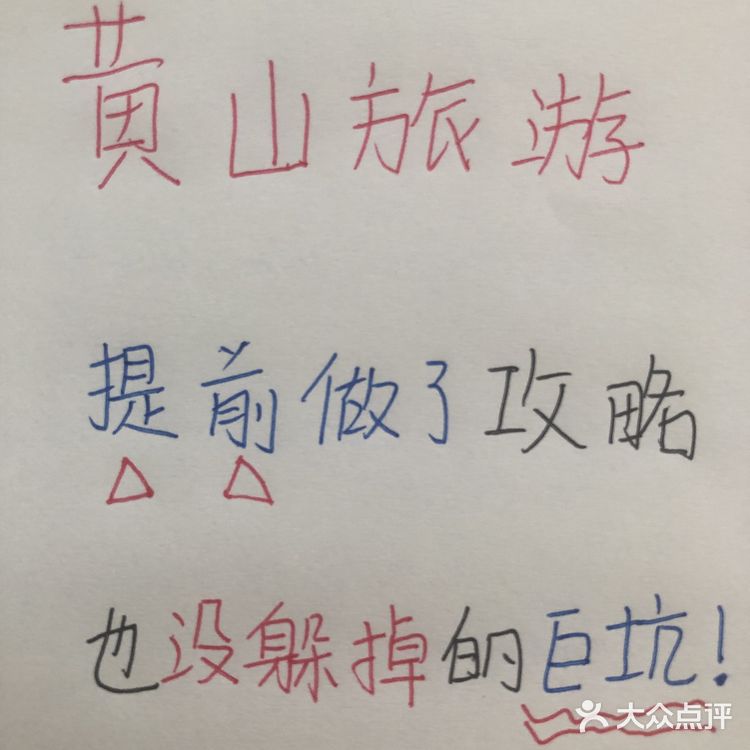 黄山旅游
提前做了攻略
也没躲掉的巨坑!
大众点评